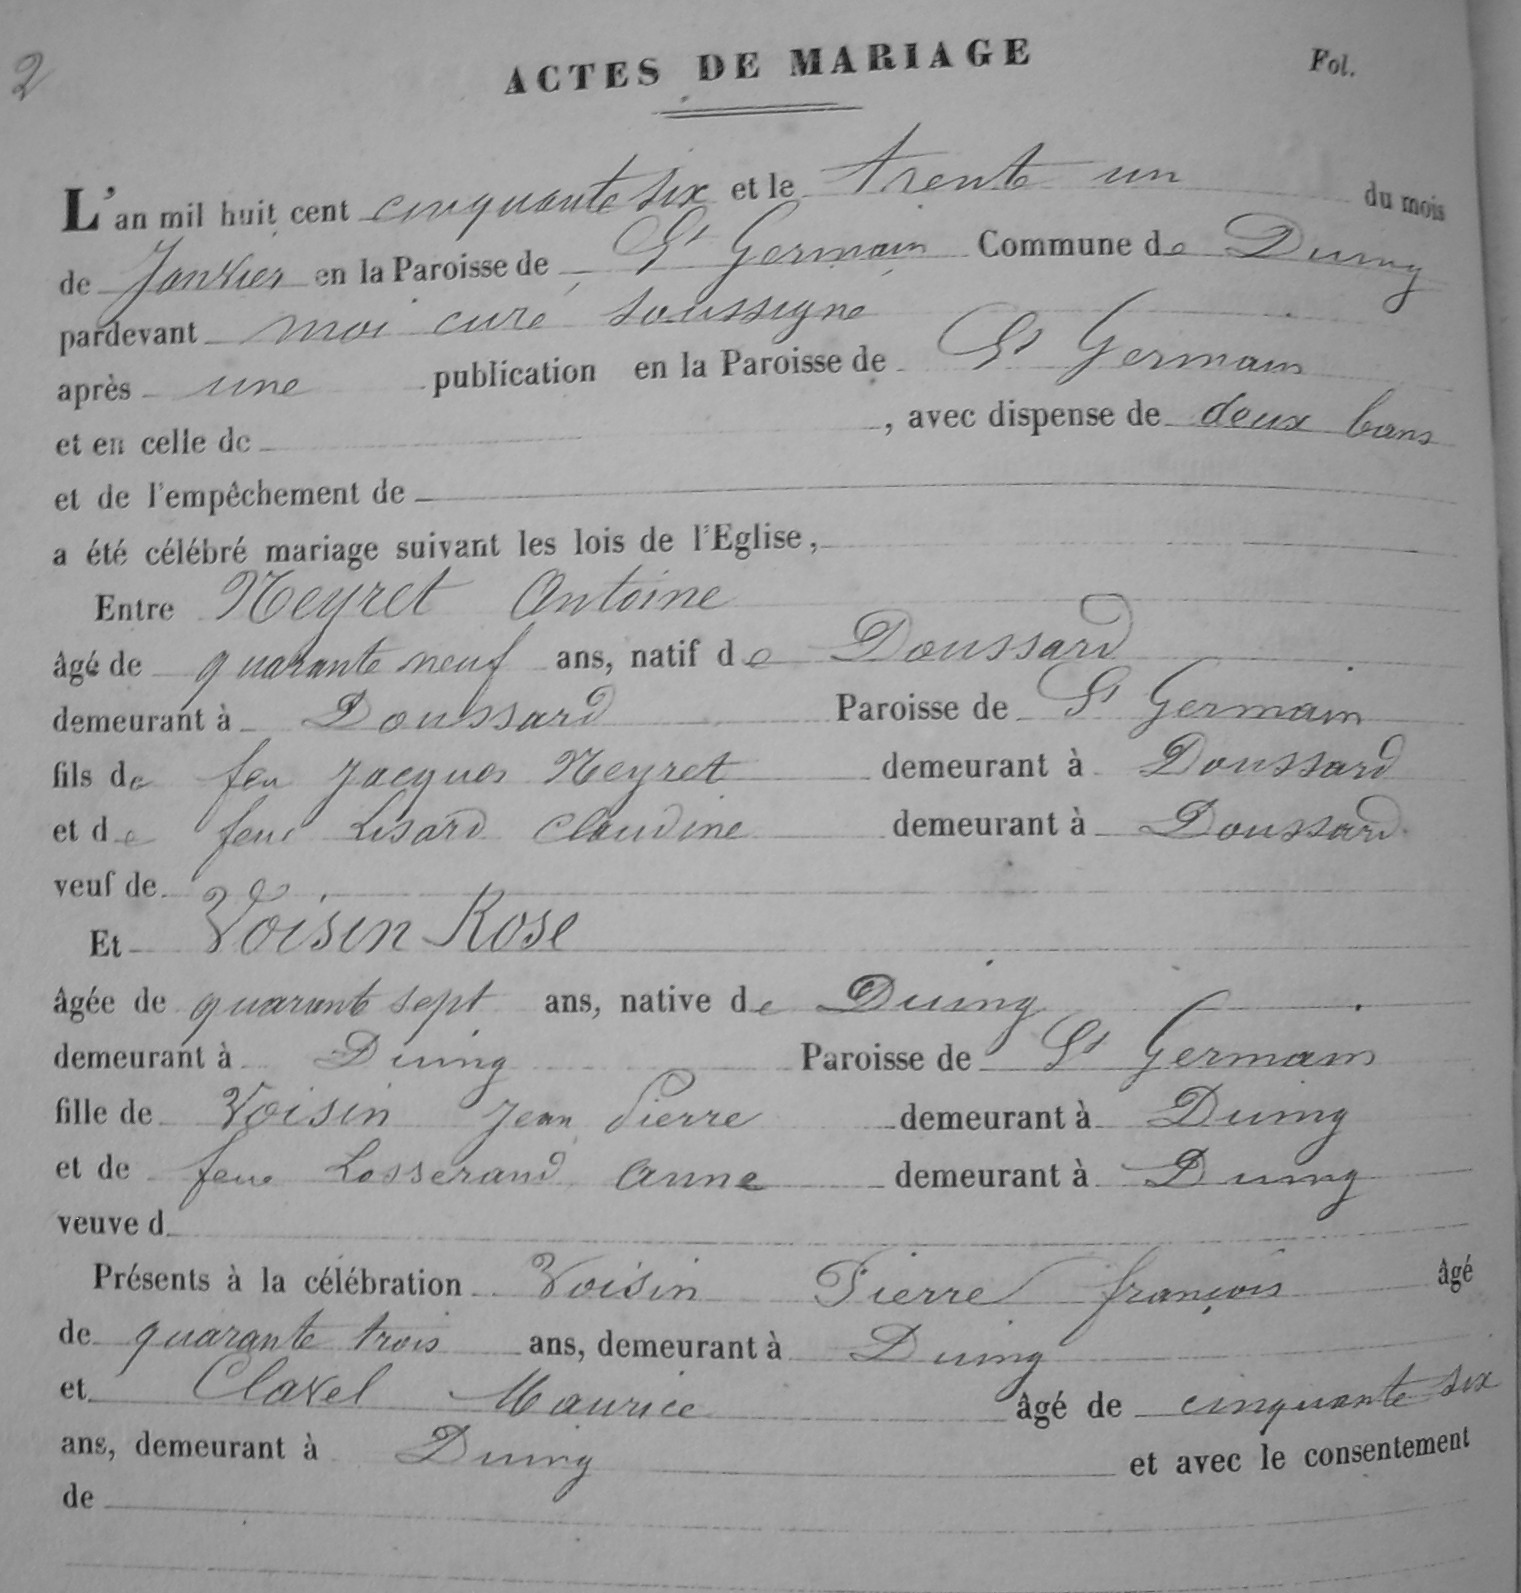 2
ACTES DE MARIAGE
Fol.
L'an mil huit cent cinquante six et le trente un du mois
de Janvier en la Paroisse de St Germain Commune de Duing
pardevant moi curé soussigné
après une publication en la Paroisse de St Germain
et en celle de , avec dispense de deux bans
et de l'empêchement de
a été célébré mariage suivant les lois de l'Eglise,
Entre Neyret Antoine
âgé de quarante neuf ans, natif de Doussard
demeurant à Doussard Paroisse de St Germain
fils de feu Jacques Neyret demeurant à Doussard
et de feue Lisard Claudine demeurant à Doussard.
veuf de
Et Voisin Rose
âgée de quarante sept ans, native de Duing
demeurant à Duing Paroisse de St Germain
fille de Voisin Jean Pierre demeurant à Duing
et de feue Losserand Anne demeurant à Duing
veuve d
Présents à la célébration Voisin Pierre françois âgé
de quarante trois ans, demeurant à Duing
et Clavel Maurice âgé de cinquante six
ans, demeurant à Duing et avec le consentement
de